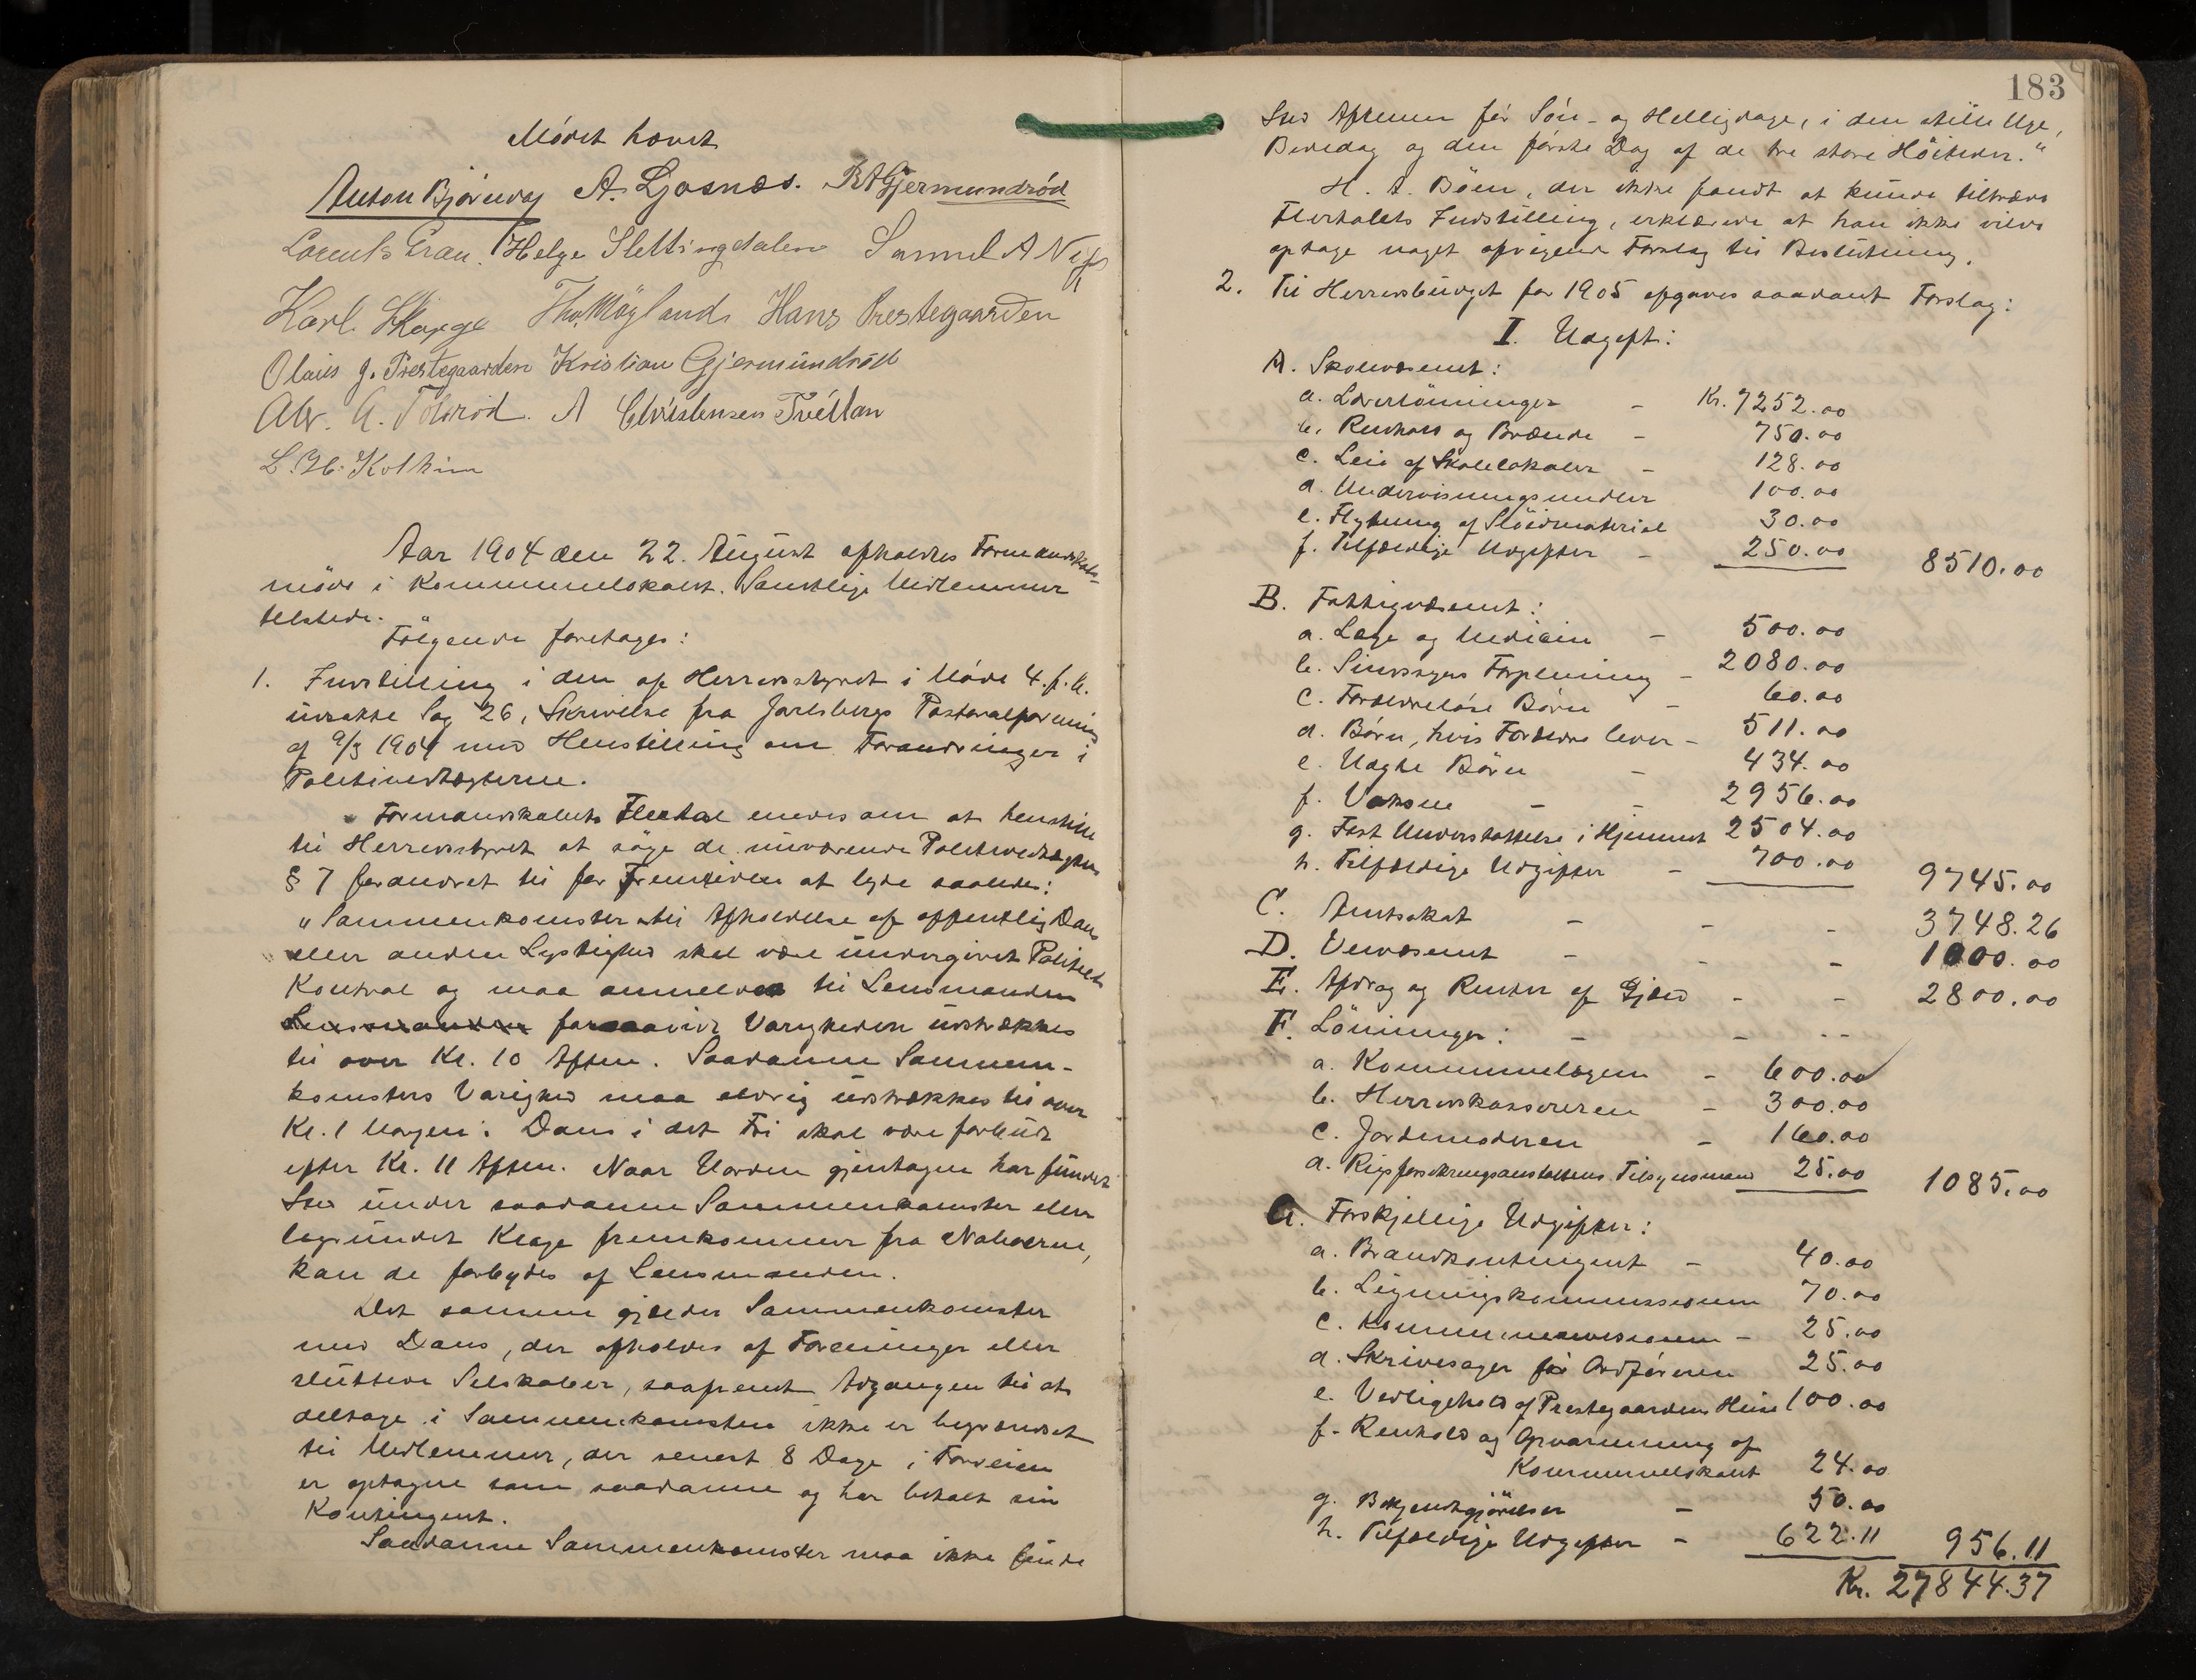 Mödet hævet
Anton Bjørnvag A. Ljosnæs. B A Gjermundröd
Lorents Gran. Helge Slettingdalen Samuel A
Karl Skorge Ths. Møyland. Hans Prestegaarden
Olaus J. Prestegaarden Kristian Gjermundröd
Alv. A. A Christensen Tveitan
L. H. Kolkinn
Aar 1904 den 22. August afholdtes Formandskabs-
möde i Kommunelokalet. Samtlige Medlemmer
tilstede.
Fölgende foretoges:
1. Indstilling i den af Herredsstyret i Möde 4. f. M.
udsatte Sag 26, Skrivelse fra Jarlsbergs Pastoralforening
af 9/3 1904 med Henstilling om Forandringer i
Politivedtægterne.
Formandskabets Flertal enedes om at henstille
til Herredsstyret at söge de nuværende Politivedtægters
§ 7 forandret til for Fremtiden at lyde saaledes:
"Sammenkomster til Afholdelse af offentlig Dans
eller anden Lystighed skal være undergivet Politiets
Kontrol og maa anmeldes til Lensmanden
Lensmanden forsaavidt Varigheden udstrækkes
til over Kl. 10 Aften. Saadanne Sammen-
komsters Varighed maa aldrig udstrækkes til over
Kl. 1 Morgen. Dans i det Fri skal være forbudt
efter Kl. 11 Aften. Naar Uorden gjentagen har fundet
Sted under saadanne Sammenkomster eller
begrundet Klage fremkommer fra Naboerne,
kan de forbydes af Lensmanden.
Det samme gjælder Sammenkomster
med Dans, der afholdes af Foreninger eller
sluttede Selskaber, saafremt Adgangen til at
deltage i Sammenkomsten ikke er begrændset
til Medlemmer, der senest 8 Dage i Forveien
er optagne som saadanne og har betalt sin
Kontingent.
Saadanne Sammenkomster maa ikke finde
183
Sted Aftenen för Sön- og Helligdage, i den stille Uge,
Bededag og den förste Dag af de tre store Höitider."
H. A. Böen, der ikke fandt at kunde tiltræde
Flertallets Indstilling, erklærede at han ikke vilde
optage noget afvigende Forslag til Beslutning.
2. Til Herredsbudget for 1905 afgaves saadant Forslag:
I. Udgift:
A. Skolevæsenet:
a. Lærerlönninger - Kr. 7252.00
b. Renhold og Brænde - 750.00
c. Leie af Skolelokaler - 128.00
d. Undervisningsmidler 100.00
e. Flytning af Slöidmateriel 30.00
f. Tilfældige Udgifter - 250.00 8510.00
B. Fattigvæsenet:
a. Læge og Medicin - 500.00
b. Sindssyges Forpleining - 2080.00
c. Forældrelöse Börn - 60.00
d. Börn, hvis Forældre lever - 511.00
e. Uægte Börn - 434.00
f. Voksne - - 2956.00
g. Fast Understøttelse i Hjemmet 2504.00
h. Tilfældige Udgifter - 700.00 9745.00
C. Amtsskat - - - 3748.26
D. Veivæsenet - - - 1000.00
E. Afdrag og Renter af Gjæld - - 2800.00
F. Lönninger: - - - -
a. Kommunelægen - 600.00
b. Herredskassereren - 300.00
c. Jordemoderen - 160.00
d. Rigsforsikringsanstaltens Tilsynsmand 25.00 1085.00
G. Forskjellige Udgifter:
a. Brandkontingent - 40.00
b. Ligningskommissionen 70.00
c. Kommunerevisionen - 25.00
d. Skrivesager för Ordföreren 25.00
e. Vedligehold af Prestegaardens Huse 100.00
f. Renhold og Opvarmning af
Kommunelokalet 24.00
g. Bekjendtgjörelser - 50.00
h. Tilfældige Udgifter - 622.11 956.11
Kr. 27844.37